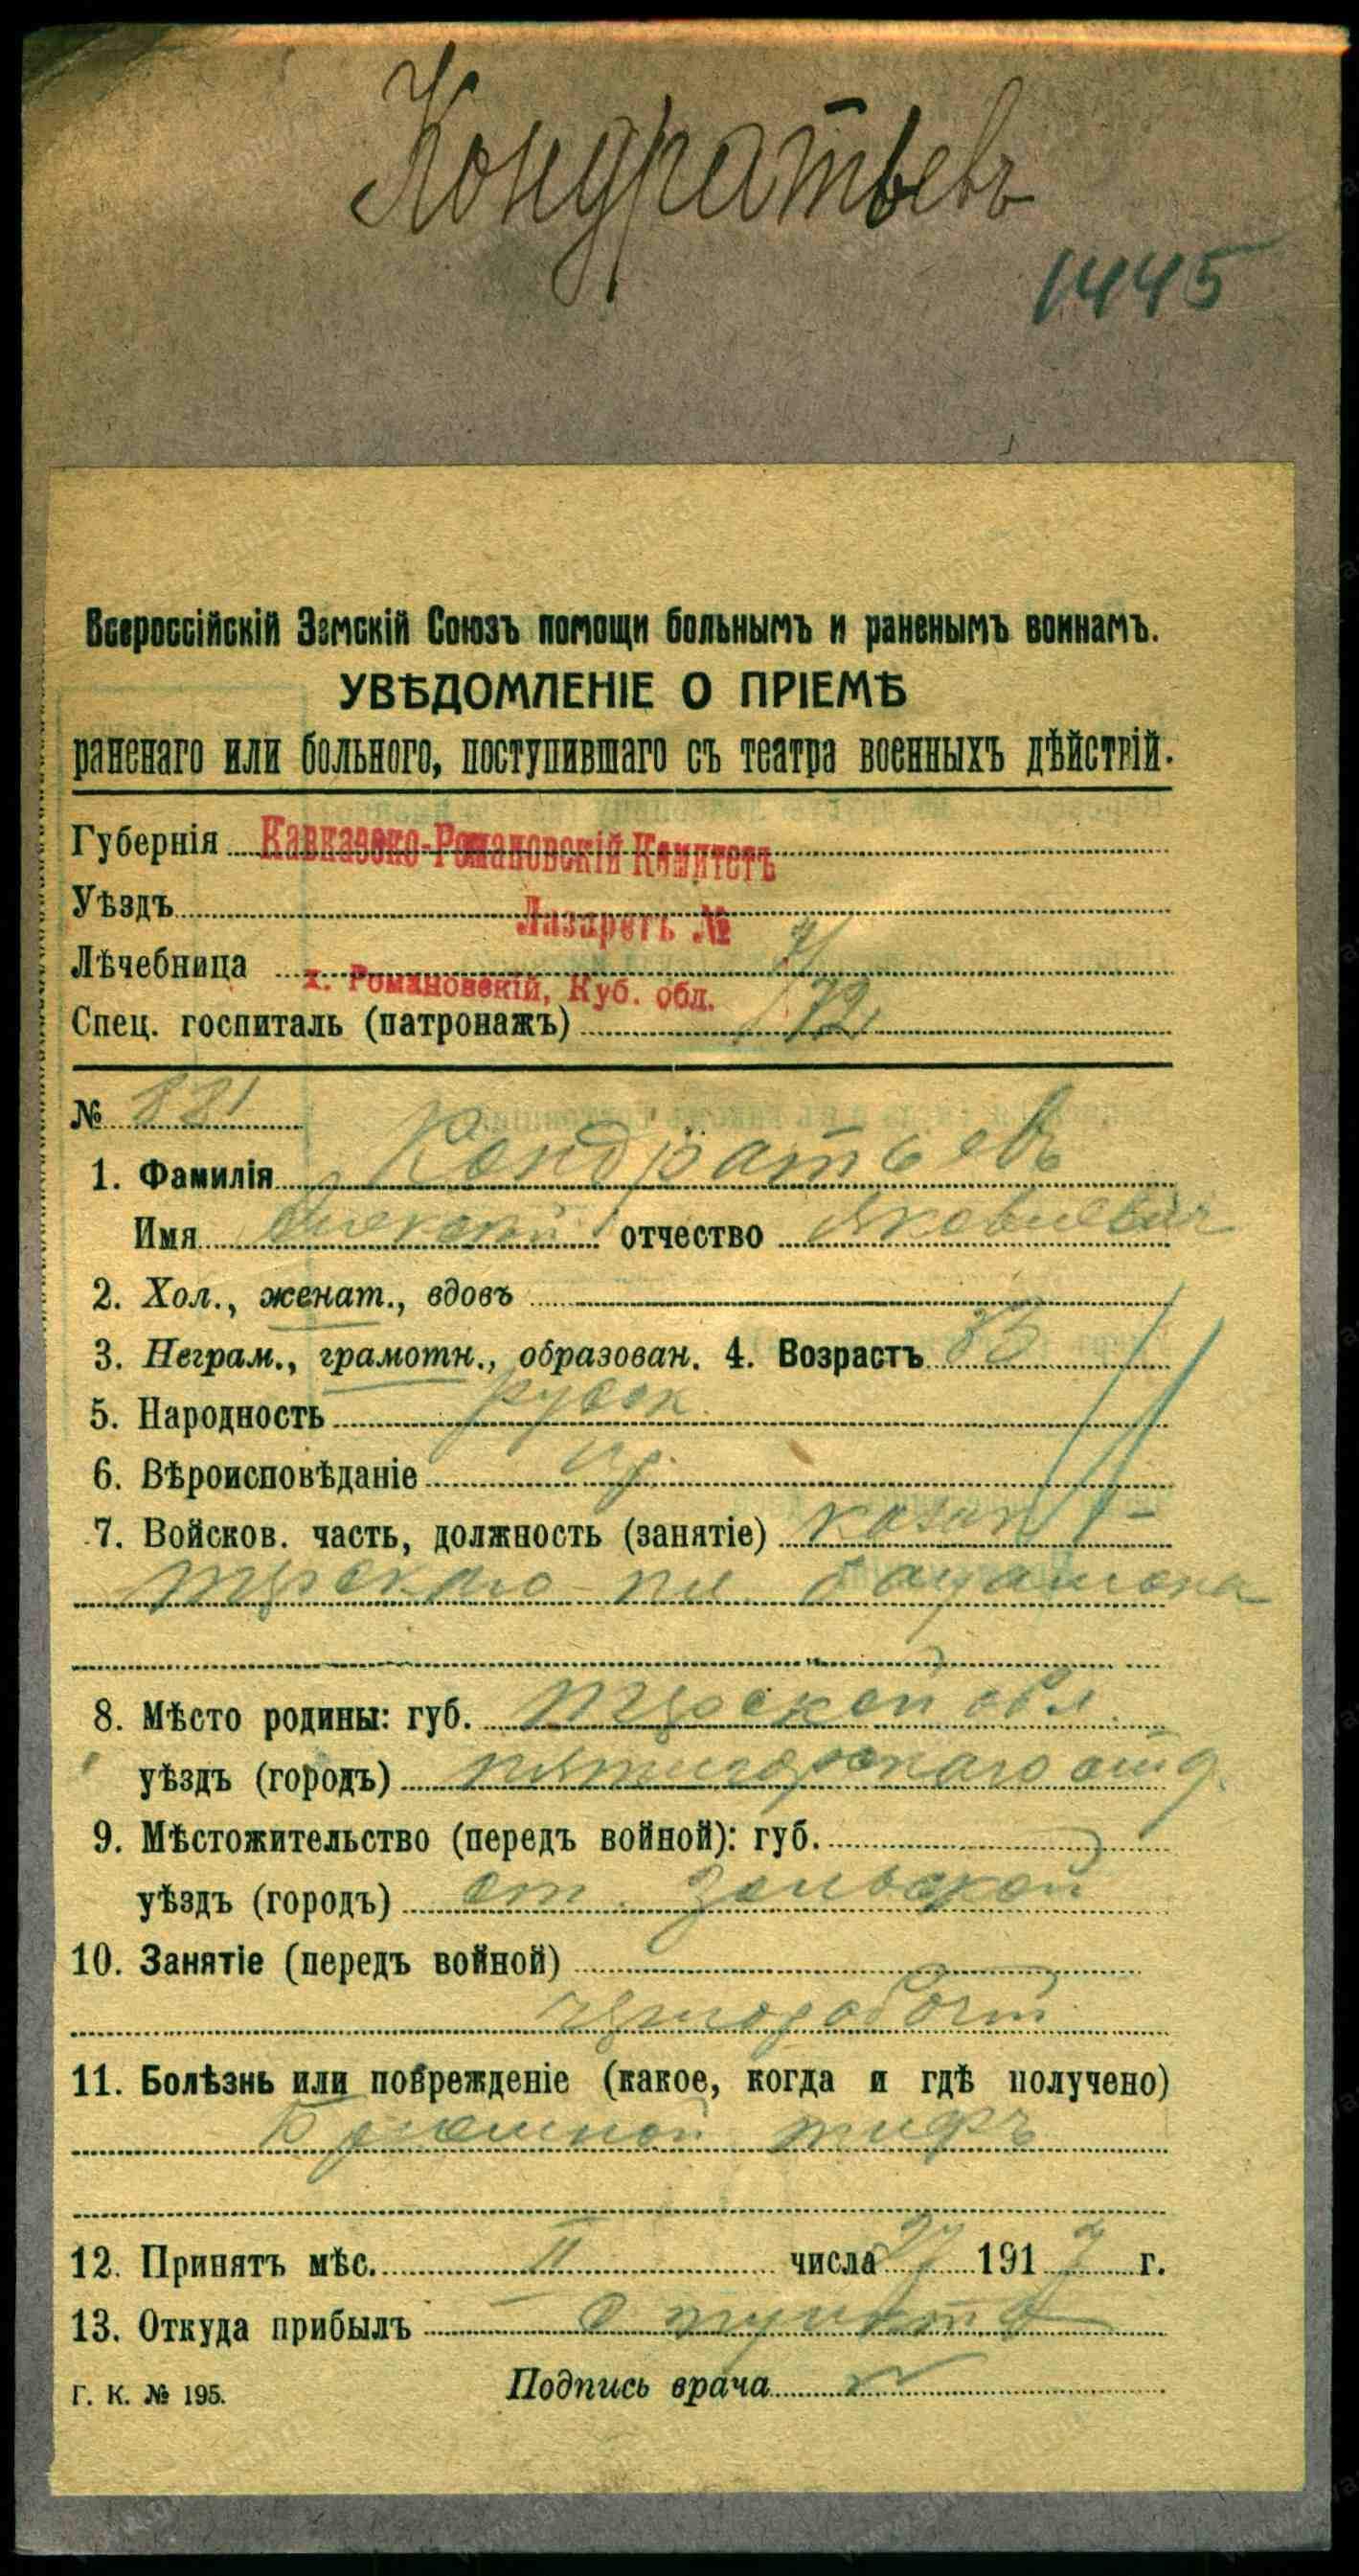 Кондратьевъ
1445
Всероссійскій Земскій Союзъ помощи больнымъ и раненымъ воинамъ.
УВѢДОМЛЕНІЕ О ПРІЕМѢ
раненаго или больного, поступившаго съ театра военныхъ дѣйствій.
Губернія Кавказско-Романовскій Комитетъ
Уѣздъ Лазаретъ №
Лѣчебница х. Романовскій, Куб. обл.
Спец. госпиталь (патронажъ) 172
№ 821
1. Фамилія Кондратьевъ
Имя Алексей отчество Яковлевич
2. Хол., женат., вдовъ
3. Неграм., грамотн., образован. 4. Возрастъ
5. Народность русск
6. Вѣроисповѣданіе пр.
7. Войсков. часть, должность (занятіе) казак 1-
Терскаго пл баталиона
8. Мѣсто родины: губ. Терской обл
уѣздъ (городъ) пятигорскаго отд.
9. Мѣстожительство (передъ войной): губ.
уѣздъ (городъ) ст. Зольской
10. Занятіе (передъ войной)
чернораб
11. Болѣзнь или поврежденіе (какое, когда и гдѣ получено)
Брюшной тифъ
12. Принятъ мѣс. II числа 27 1917 г.
13. Откуда прибылъ с пункта
Г. К. № 195. Подпись врача